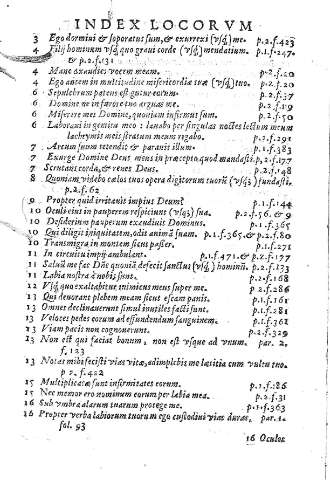 INDEX LOCORVM
3 Ego dormivi & soporatus sum, & exurrexi (usq́) me. p.2.f.423
4 Filij hominum usq́ quo gravi corde (usq́) mendatium. p.1.f.247.
& p.2.f.131
4 Mane exaudies vocem meam. p.2.f.20
4 Ego autem in multitudine misericordiæ tuæ (usq́) tuo. p.2.f.20
6 Sepulchrum patens est gutur eorum. p.2.f.37
6 Domine ne in furore tuo arguas me. p.2.f.19
6 Miserere mei Domine, quoniam infirmus sum. p.2.f.50
6 Laboravi in gemitu meo : lavabo per singulas noctes lectum meum
lachrymis meis stratum meum rigabo. p.2.f.291
7 Arcum suum tetendit & paravit illum. p.1.f.383
7 Exurge Domine Deus meus in præcepto quod mandasti. p.2.f.177
7 Scrutans corda, & renes Deus. p.2.f.148
8 Quoniam videbo cælos tuos opera digitorum tuorũ (usq́) fundasti.
p.2.f.62
9 Propter quid irritavis impius Deum? p.1.f.144
10 Oculi eius in pauperem respiciunt (usq́) sua. p.2.f.56. & 9
10 Desiderium pauperum exaudivit Dominus. p.1.f.19
10 Qui diligit iniquitatem, odit animã suam. p.1.f.365. & p.2.f.80
10 Transmigra in montem sicut passer. p.1.f.271
11 In circuitu impij ambulant. p.1.f.471. & p.2.f.177
11 Salvũ me fac Dñe quoniã defecit sanctus (usq́) hominũ. p.2.f.173
11 Labia nostra à nobis sunt. p.2.f.168
12 Usq́ quo exaltabitur inimicus meus super me. p.2.f.286
13 Qui devorant plebem meam sicut escam panis. p.1.f.161
13 Omnes declinaverunt simul inutiles facti sunt. p.1.f.281
13 Veloces pedes eorum ad effundendum sanguinem. p.1.f.361
13 Viam pacis non cognoverunt. p.2.f.329
13 Non est qui faciat bonum, non est usque ad unum. par. 2.
f. 123
13 Notas mihi fecisti vias vitæ, adimplebis me lætitia cum vultu tuo.
p 2. f.422
15 Multiplicatæ sunt infirmitates eorum. p.1.f.86
15 Nec memor ero nominum eorum per labia mea. p.2.f.31
16 Sub umbra alarum tuarum protege me. p.1.f.363
16 Propter verba labiorum tuorum ego custodivi vias duras, par. 1.
fol. 93
16 Oculos